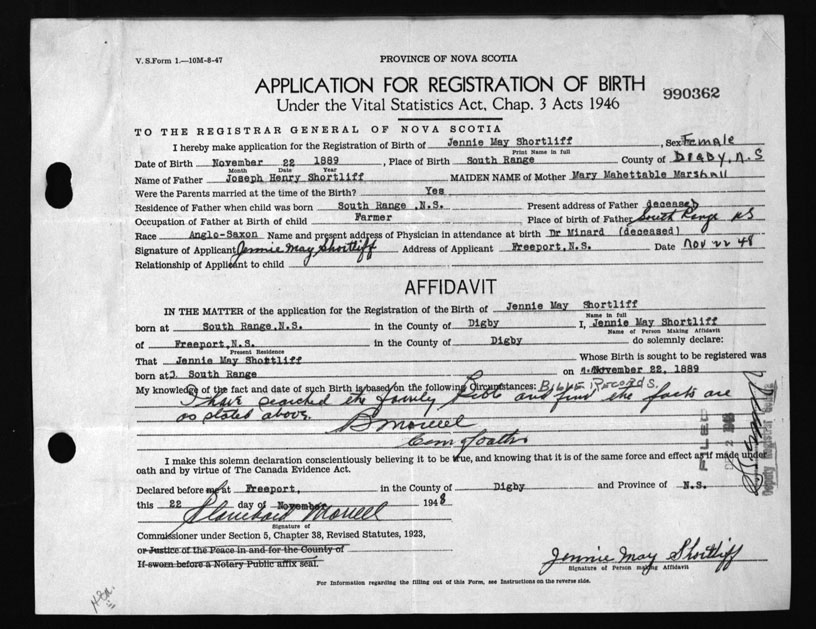 V. S. Form 1.—10M-8-47
PROVINCE OF NOVA SCOTIA
APPLICATION FOR REGISTRATION OF BIRTH
990362
Under the Vital Statistics Act, Chap. 3 Acts 1946
TO THE REGISTRAR GENERAL OF NOVA SCOTIA
I hereby make application for the Registration of Birth of Jennie May Shortliff, Sex Female
Print Name in full
Date of Birth November 22 1889, Place of Birth South Range County of DIGBY, N.S
Month Date Year
Name of Father Joseph Henry Shortliff MAIDEN NAME of Mother Mary Mahettable Marshall
Were the Parents married at the time of the Birth? Yes
Residence of Father when child was born South Range ,N.S. Present address of Father deceased
Occupation of Father at Birth of child Farmer Place of birth of Father South Range NS
Race Anglo-Saxon Name and present address of Physician in attendance at birth Dr Minard (deceased)
Signature of Applicant Jennie May Shortliff Address of Applicant Freeport,N.S. Date Nov 22 48
Relationship of Applicant to child
AFFIDAVIT
IN THE MATTER of the application for the Registration of the Birth of Jennie May Shortliff
Name in full
born at South Range,N.S. in the County of Digby I, Jennie May Shortliff
Name of Person Making Affidavit
of Freeport,N.S. in the County of Digby do solemnly declare:
Present Residence
That Jennie May Shortliff Whose Birth is sought to be registered was
born at South Range on November 22, 1889
My knowledge of the fact and date of such Birth is based on the following Circumstances: BIBLE RECORDS.
I have searched the family Bible and find the facts are
as stated above.
B Morrell
Com of oaths
FILED
Deputy Registrar
I make this solemn declaration conscientiously believing it to be true, and knowing that it is of the same force and effect as if made under
oath and by virtue of The Canada Evidence Act.
Declared before me at Freeport, in the County of Digby and Province of N.S.
this 22 day of November 1948
Blanchard Morrell
Signature of
Commissioner under Section 5, Chapter 38, Revised Statutes, 1923,
or Justice of the Peace in and for the County of
If sworn before a Notary Public affix seal.
Jennie May Shortliff
Signature of Person making Affidavit
For Information regarding the filling out of this Form, see Instructions on the reverse side.